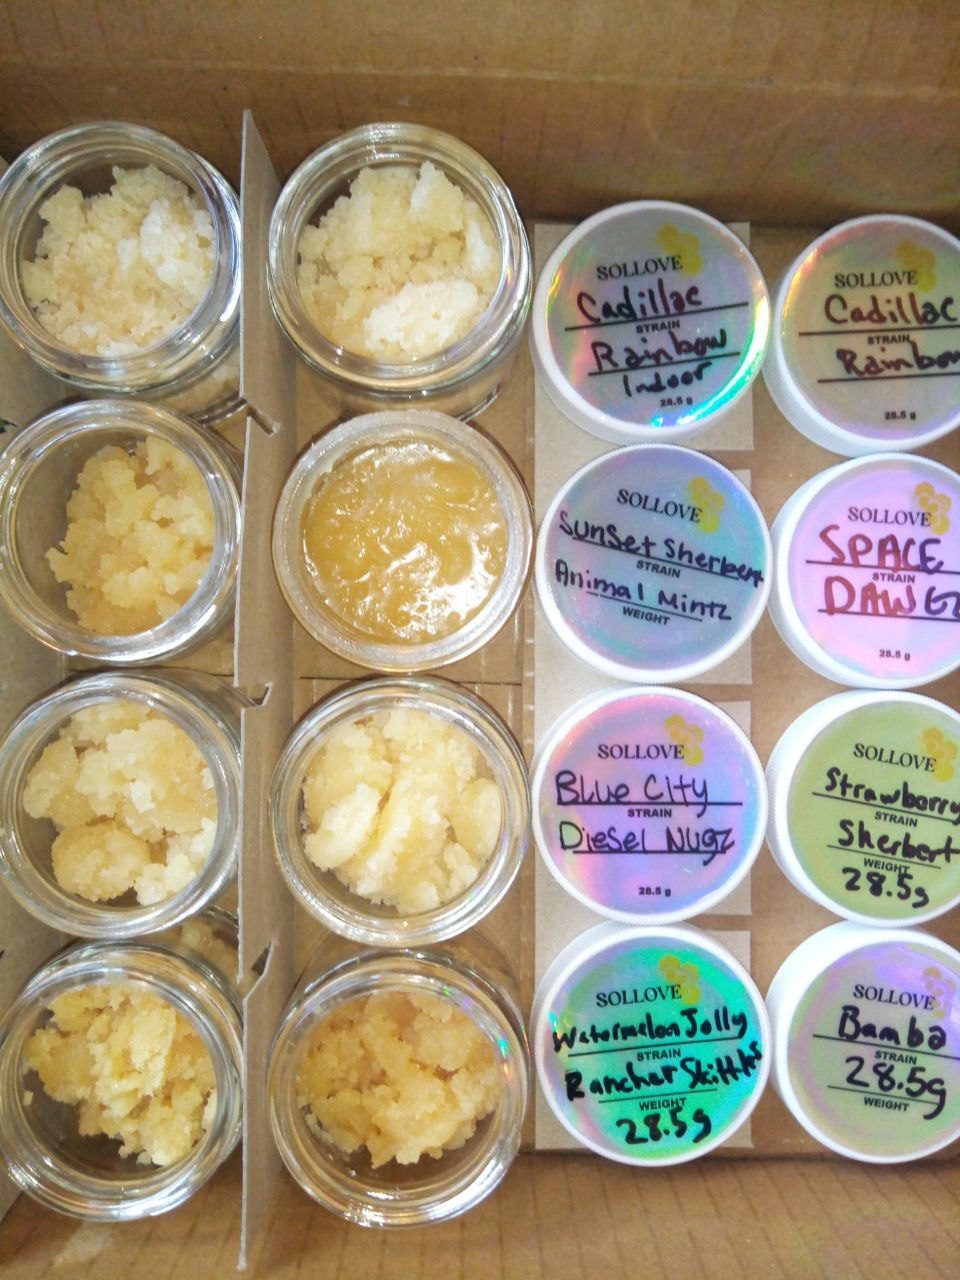 SOLLOVE
Cadillac
STRAIN
Rainbow
Indoor
28.5 g
SOLLOVE
Cadillac
STRAIN
Rainbow
28.5 g
SOLLOVE
Sunset Sherbert
STRAIN
Animal Mintz
WEIGHT
SOLLOVE
SPACE
STRAIN
DAWGZ
28.5 g
SOLLOVE
Blue City
STRAIN
Diesel Nugz
28.5 g
SOLLOVE
Strawberry
STRAIN
Sherbert
WEIGHT
28.5g
SOLLOVE
Watermelon Jolly
STRAIN
Rancher Skittlts
WEIGHT
28.5g
SOLLOVE
Bamba
STRAIN
28.5g
WEIGHT